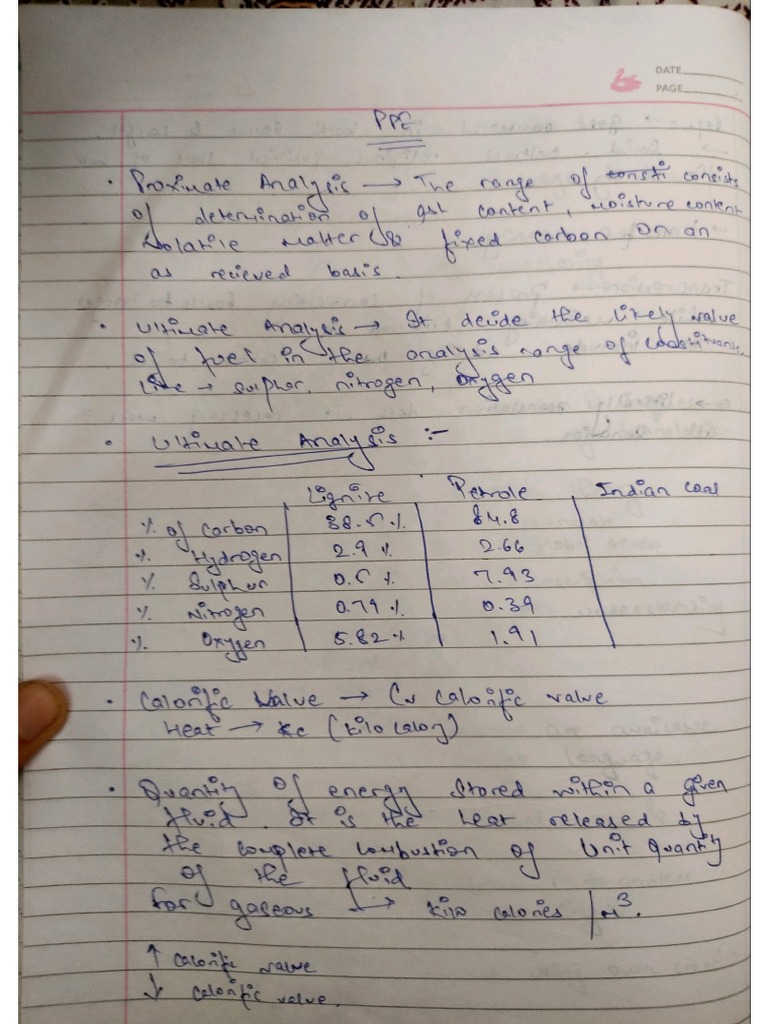 DATE
PAGE
PPE
• Proximate Analysis → The range of consti consists
of determination of ash content, Moisture content
volatile matter & fixed carbon on an
as recieved basis.
• Ultimate Analysis → It decide the likely value
of fuel in the analysis range of
like → sulphur, nitrogen, Oxygen
• Ultimate Analysis :-
Lignite Petrole Indian coal
% of Carbon 38.5 % 84.8
% Hydrogen 2.9 % 2.66
% Sulphur 0.5 % 7.93
% Nitrogen 0.79 % 0.39
% Oxygen 5.82 % 1.91
• Calorific Value → Cv Calorific value
Heat → kc (Kilo Calory)
• Quantity of energy Stored within a given
fluid. It is the heat released by
the complete combustion of Unit Quantity
of the fluid
for gaseous → kilo calories / M³.
↑ calorific value
↓ calorific value.